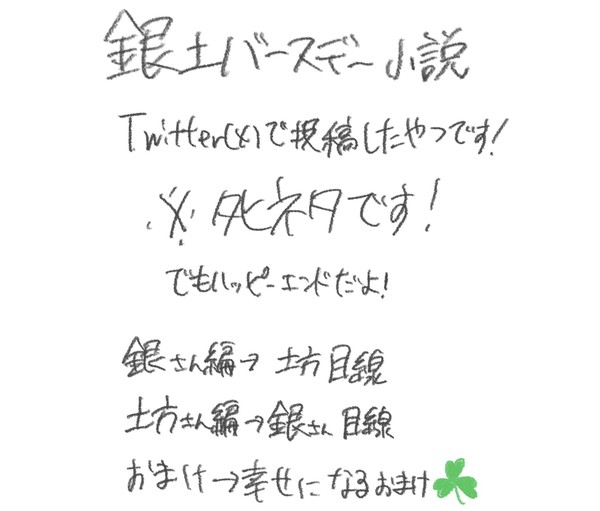 銀土バースデー小説
Twitter(X)で投稿したやつです!
※タヒネタです!
でもハッピーエンドだよ!
銀さん編→土方目線
土方さん編→銀さん目線
おまけ→幸せになるおまけ